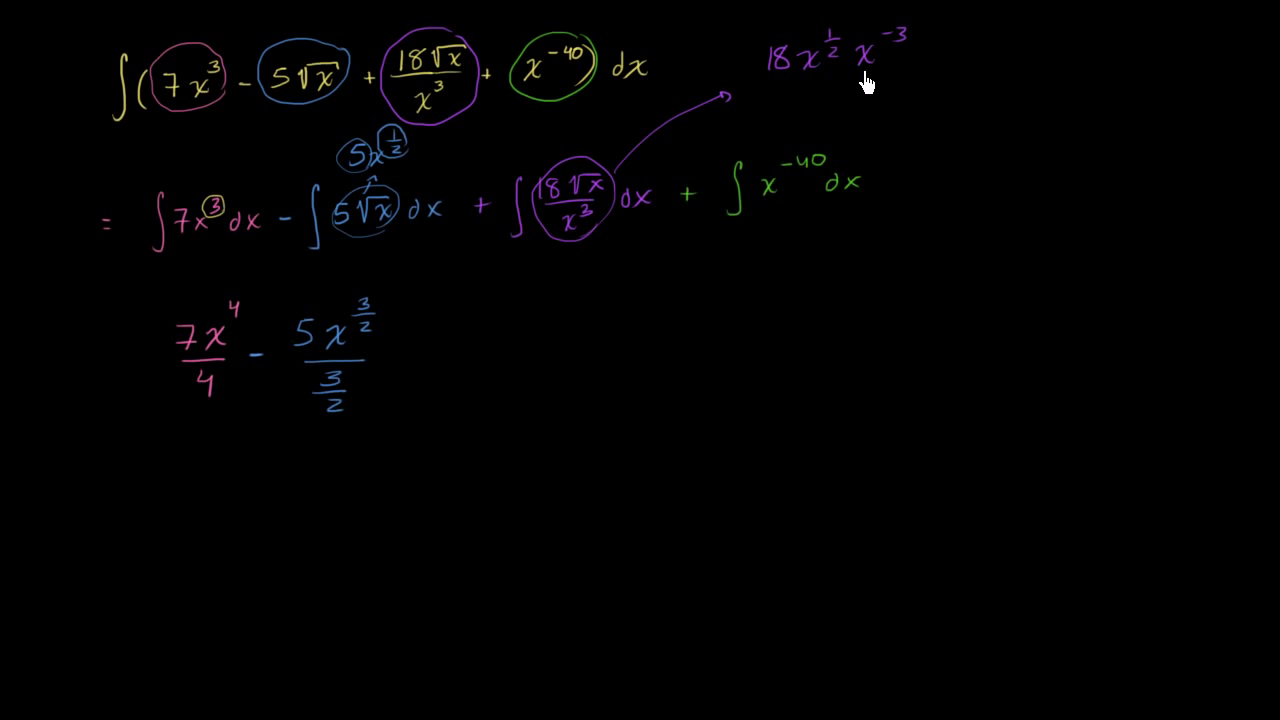 ∫(7x³ - 5√x + 18√x/x³ + x⁻⁴⁰) dx
18x^(1/2) x⁻³
5x^(1/2)
= ∫7x³dx - ∫5√x dx + ∫18√x/x³ dx + ∫x⁻⁴⁰dx
7x⁴/4 - 5x^(3/2)/(3/2)